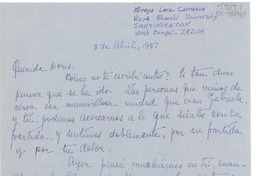 Mireya Lara-Carrasco
Visva Bharati University
SANTINIKETAN
West Bengal-INDIA
5 de Abril, 1957
Querida Doris:
Cómo no te escribí antes? Es tan duro
pensar que se ha ido. Las personas que vimos de
cerca esa maravillosa unidad que eran Gabriela
y tú, podemos acercarnos a lo que sientes con su
partida, y sentimos doblemente, por su partida
y por tu dolor.
Ayer pensé muchísimo en ti, cuan-